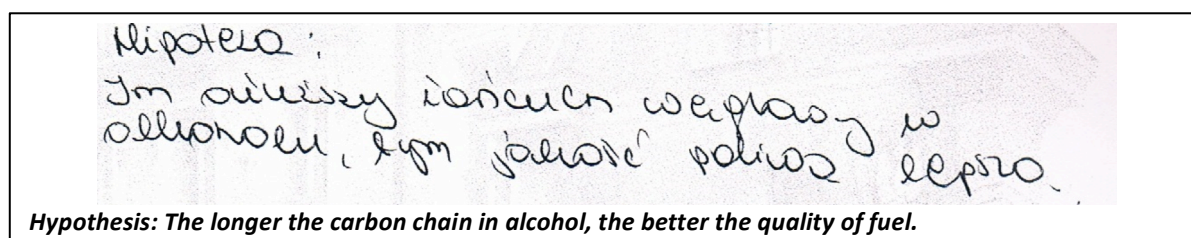 Hipoteza:
Im dłuższy łańcuch węglowy w
alkoholu, tym jakość paliwa lepsza.
Hypothesis: The longer the carbon chain in alcohol, the better the quality of fuel.